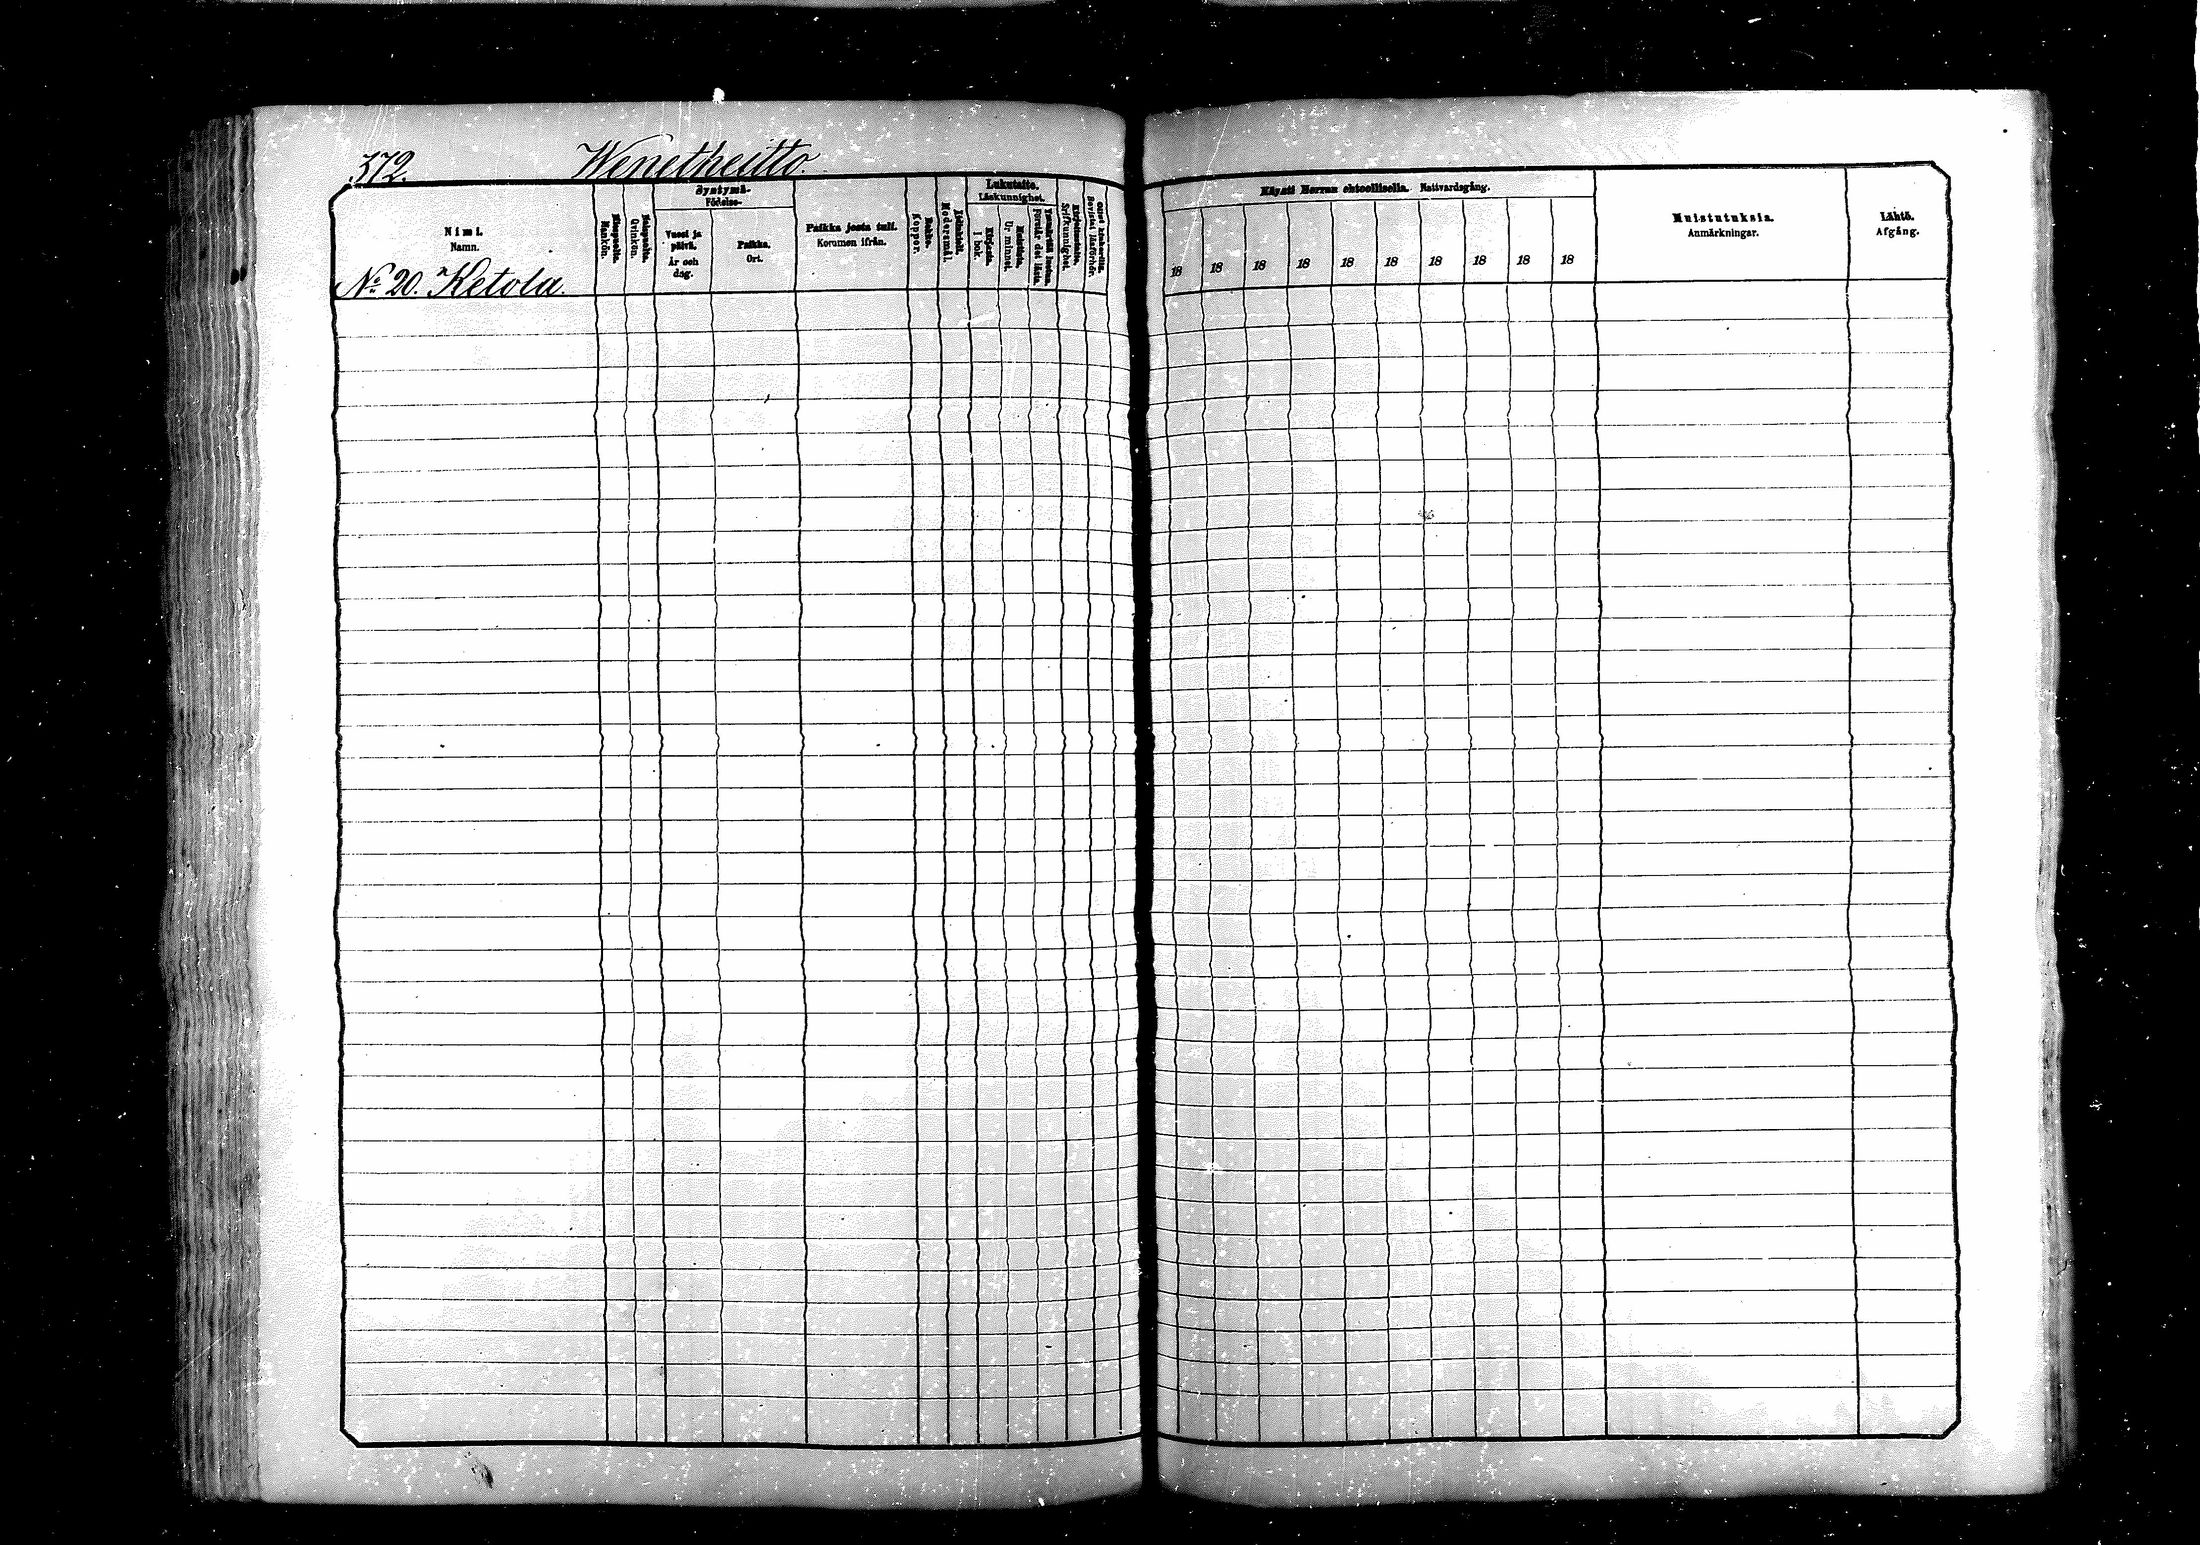 372. Wenetheitto.
Nimi.
Namn.
Miespuolia.
Mankön.
Naispuolia.
Qvinkön.
Syntymä-
Födelse-
Vuosi ja
päivä.
År och
dag.
Paikka.
Ort.
Paikka josta tuli.
Kommen ifrån.
Rokko.
Koppor.
Äidinkieli.
Modersmål.
Lukutaito.
Läskunnighet.
Kirjasta.
I bok.
Muistista.
Ur minnet.
Ymmärtää luetun.
Förstår det lästa.
Kirjoitustaito.
Skrifkunnighet.
Ollut kinkereillä.
Bevistat läsförhör.
Käynti Herran ehtoollisella. Nattvardsgång.
18 18 18 18 18 18 18 18 18 18
Muistutuksia.
Anmärkningar.
Lähtö.
Afgång.
No 20. Ketola.